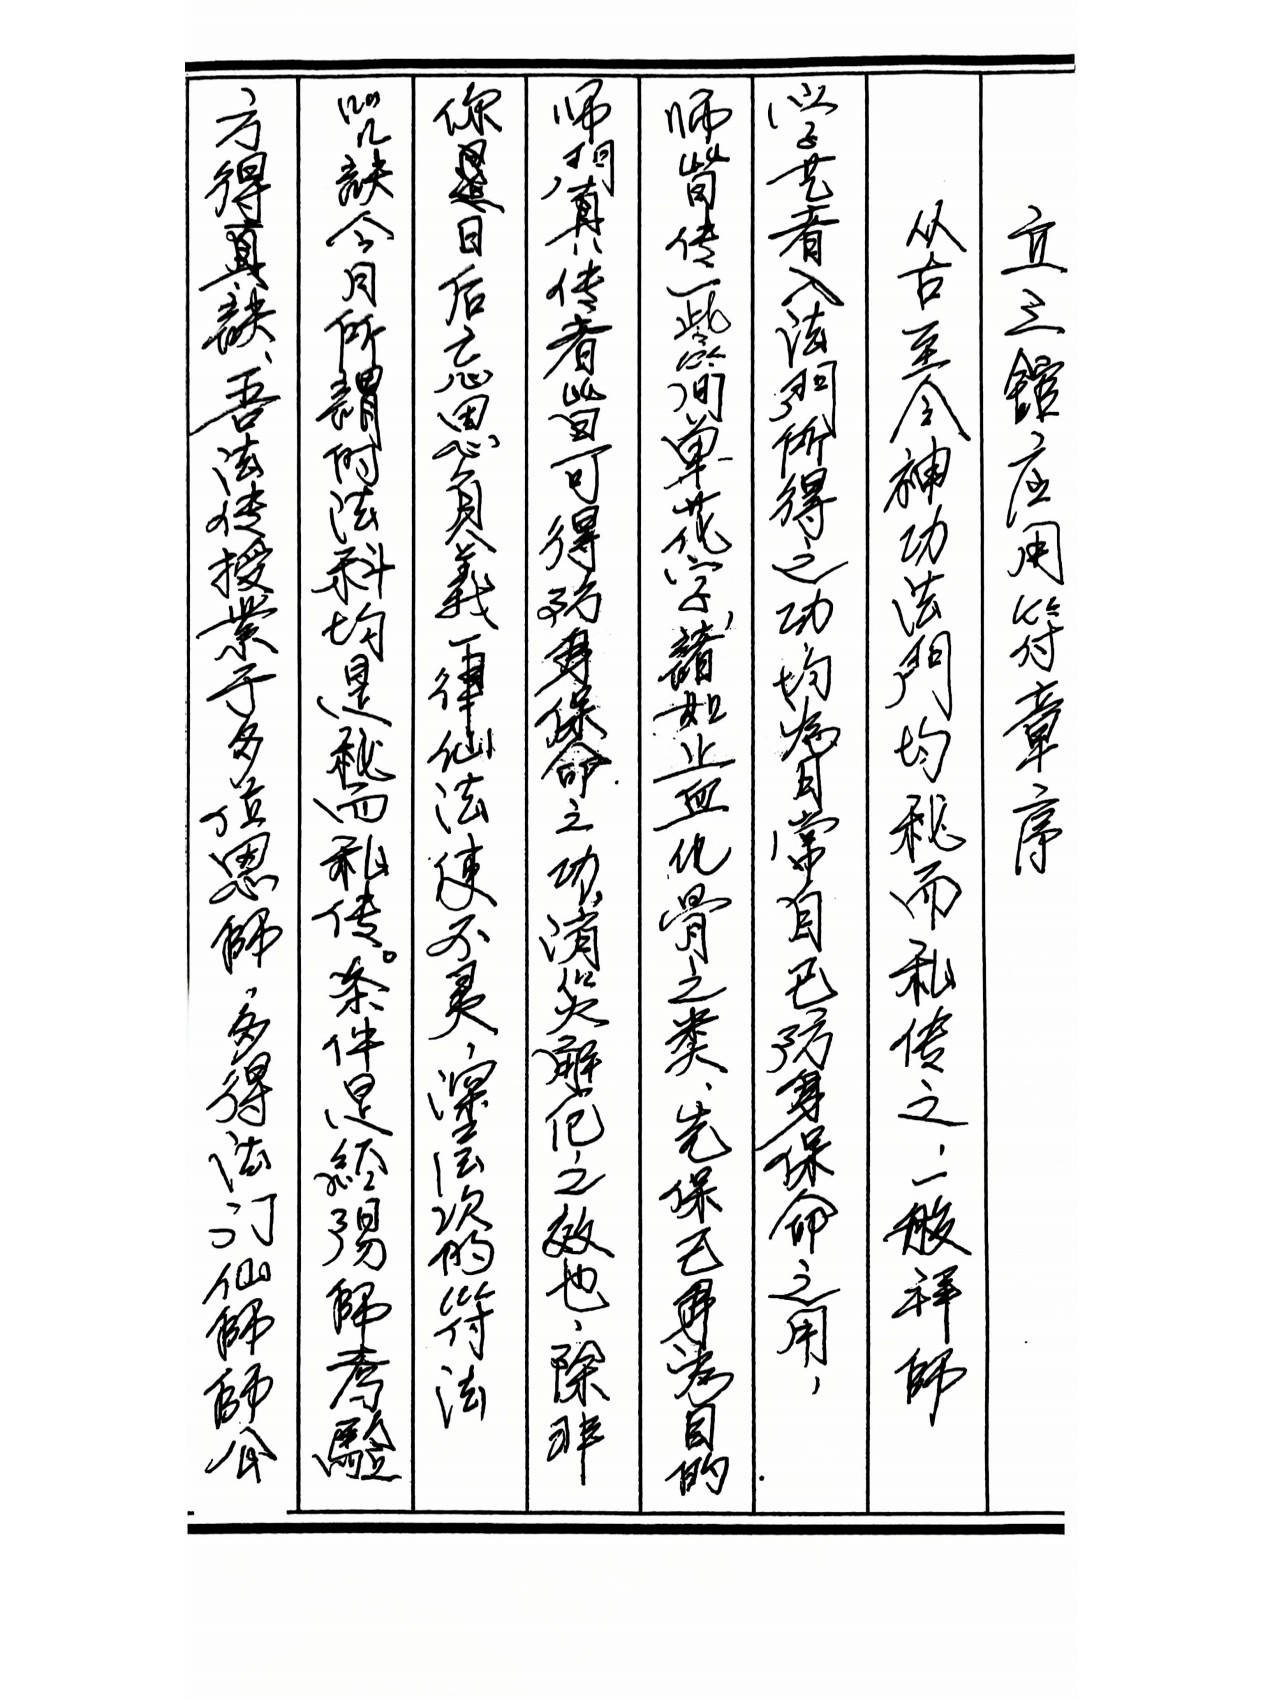 立之館应用符章序
从古至今神功法門均秘而私传之，一般祥師
学艺者入法門所得之功均為日常自己防身保命之用，
师皆传一些簡单花字，諸如止血化骨之类、先保己身為目的
师門真传者皆可得防身保命之功，消災解化之效也，除非
你是日后忘恩負義一律仙法使不灵，深层次的符法
咒訣令月所謂的法科均是秘而私传。条件是經過師考驗
方得真訣、吾法传授業于多位恩師，多得法门仙師師公